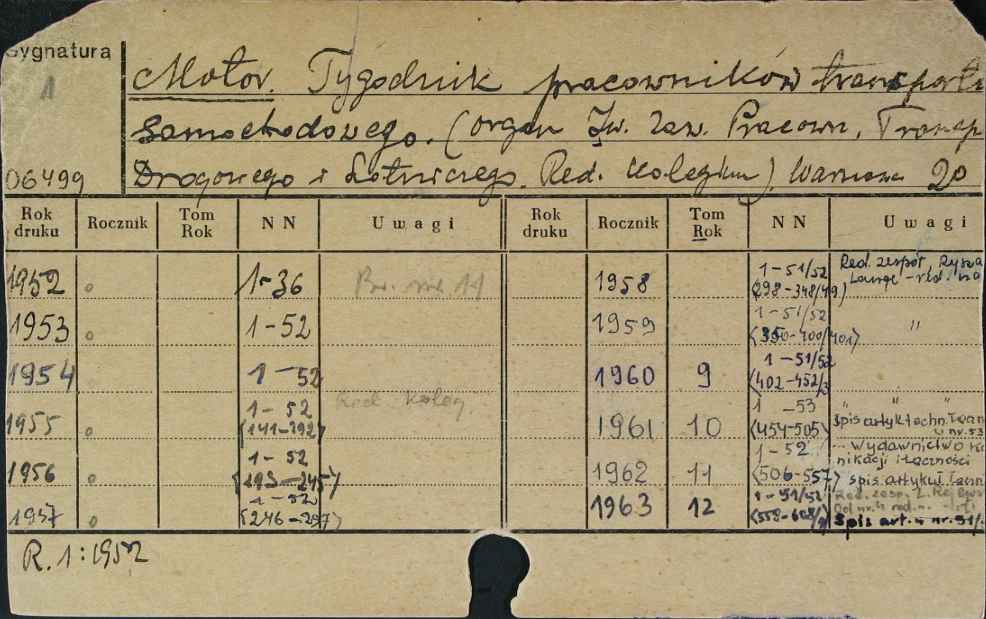 Sygnatura
1
06499
Motor. Tygodnik pracowników transportu
samochodowego. (organ Zw. Zaw. Pracown. Transp
Drogowego i Lotniczego. Red. Kolegium). Warszawa 20
Rok druku Rocznik Tom Rok NN Uwagi Rok druku Rocznik Tom Rok NN Uwagi
1952 0 1-36 1958 1-51/52 (298-348/49) Red. zespół, Rysza
1953 0 1-52 1959 1-51/52 (350-400/401) "
1954 0 1-52 1960 9 1-51/52 (402-452/3
1955 0 1-52 (141-192) Red. Koleg. 1961 10 1-53 (454-505) " " " Spis artyk. techn. w nr. 53
1956 0 1-52 (193-245) 1962 11 1-52 (506-557) Wydawnictwo Ko nikacji i Łączności spis artykuł.
1957 0 1-52 (246-297) 1963 12 1-51/52 (558-608/9) Red. zesp. Od nr. 4 red. n. Spis art. w nr. 51/
R. 1: 1952